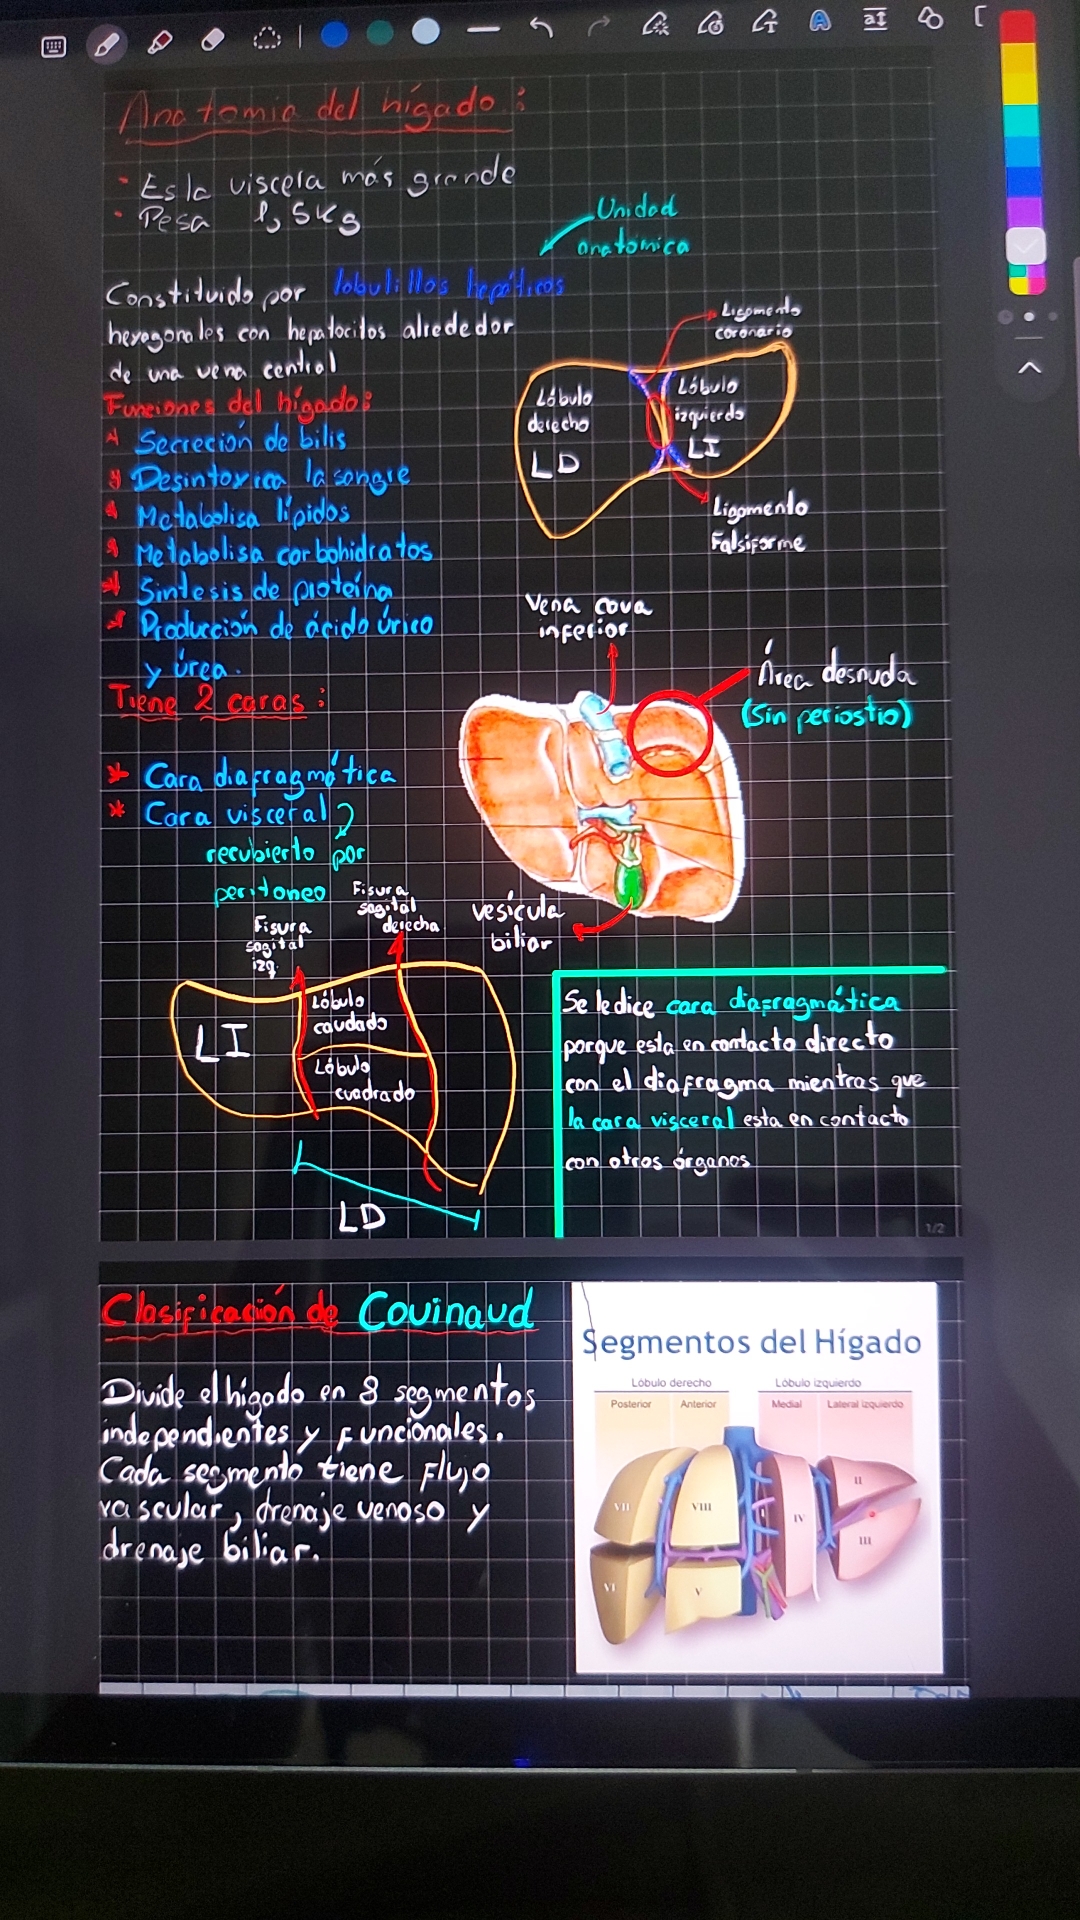 Anatomia del hígado:
Es la viscera más grande
Pesa 1,5Kg
Unidad
anatómica
Constituido por lobulillos hepáticos
hexagonales con hepatocitos alrededor
de una vena central
Ligamento
coronario
Lóbulo
derecho
LD
Lóbulo
izquierdo
LI
Ligamento
Falsiforme
Funciones del hígado:
* Secreción de bilis
* Desintoxica la sangre
* Metabolisa lípidos
* Metabolisa carbohidratos
* Sintesis de proteína
* Producción de ácido úrico
y úrea.
Vena cava
inferior
Área desnuda
(Sin periostio)
Tiene 2 caras:
* Cara diafragmática
* Cara visceral
recubierto por
peritoneo
vesícula
biliar
Fisura
sagital
izq.
Fisura
sagital
derecha
LI
Lóbulo
caudado
Lóbulo
cuadrado
LD
Se le dice cara diafragmática
porque esta en contacto directo
con el diafragma mientras que
la cara visceral esta en contacto
con otros órganos
1/2
Clasificación de Couinaud
Divide el hígado en 8 segmentos
independientes y funcionales.
Cada segmento tiene flujo
vascular, drenaje venoso y
drenaje biliar.
Segmentos del Hígado
Lóbulo derecho
Lóbulo izquierdo
Posterior
Anterior
Medial
Lateral izquierdo
VII
VIII
I
IV
II
III
VI
V